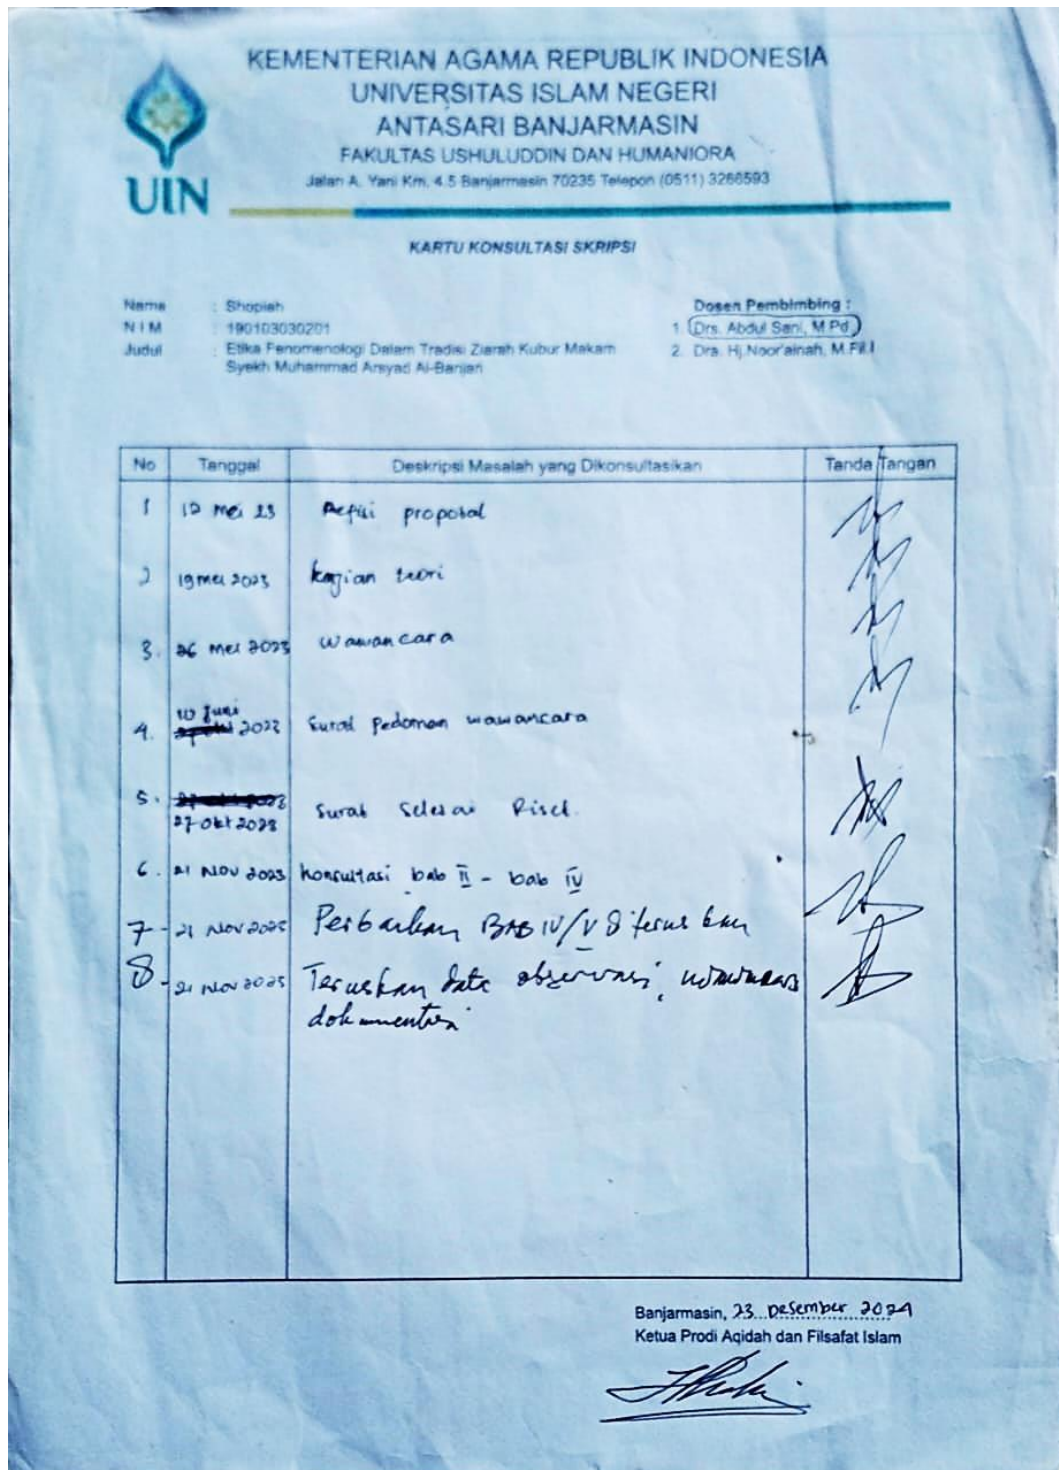 KEMENTERIAN AGAMA REPUBLIK INDONESIA
UNIVERSITAS ISLAM NEGERI
ANTASARI BANJARMASIN
FAKULTAS USHULUDDIN DAN HUMANIORA
Jalan A. Yani Km. 4.5 Banjarmasin 70235 Telepon (0511) 3266593
UIN
KARTU KONSULTASI SKRIPSI
Nama : Shopiah
N I M : 190103030201
Judul : Etika Fenomenologi Dalam Tradisi Ziarah Kubur Makam
Syekh Muhammad Arsyad Al-Banjari
Dosen Pembimbing :
1. Drs. Abdul Sani, M.Pd
2. Dra. Hj.Noor'ainah, M.Fil.I
No Tanggal Deskripsi Masalah yang Dikonsultasikan Tanda Tangan
1 12 mei 23 Refisi proposal
2 19 mei 2023 kajian teori
3. 26 mei 2023 wawancara
10 Juni
4. 2023 Surat Pedoman wawancara
5. Surat Selesai Riset.
27 Okt 2023
6. 21 Nov 2023 konsultasi bab II - bab IV
7 - 21 Nov Perbaikan BAB IV/V diteruskan
8 - 21 Nov Teruskan data observasi, wawancara
dokumentasi
Banjarmasin, 23 Desember 2024
Ketua Prodi Aqidah dan Filsafat Islam